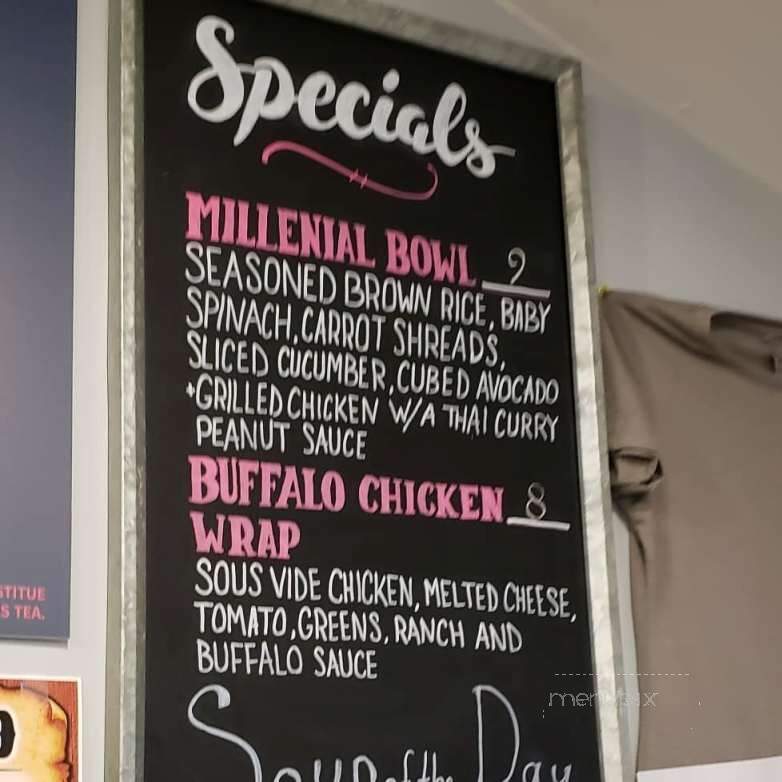 Specials
MILLENIAL BOWL 9
SEASONED BROWN RICE, BABY
SPINACH, CARROT SHREADS,
SLICED CUCUMBER, CUBED AVOCADO
+GRILLED CHICKEN W/A THAI CURRY
PEANUT SAUCE
BUFFALO CHICKEN 8
WRAP
SOUS VIDE CHICKEN, MELTED CHEESE,
TOMATO, GREENS, RANCH AND
BUFFALO SAUCE
Soup of the Day
STITUE
S TEA.